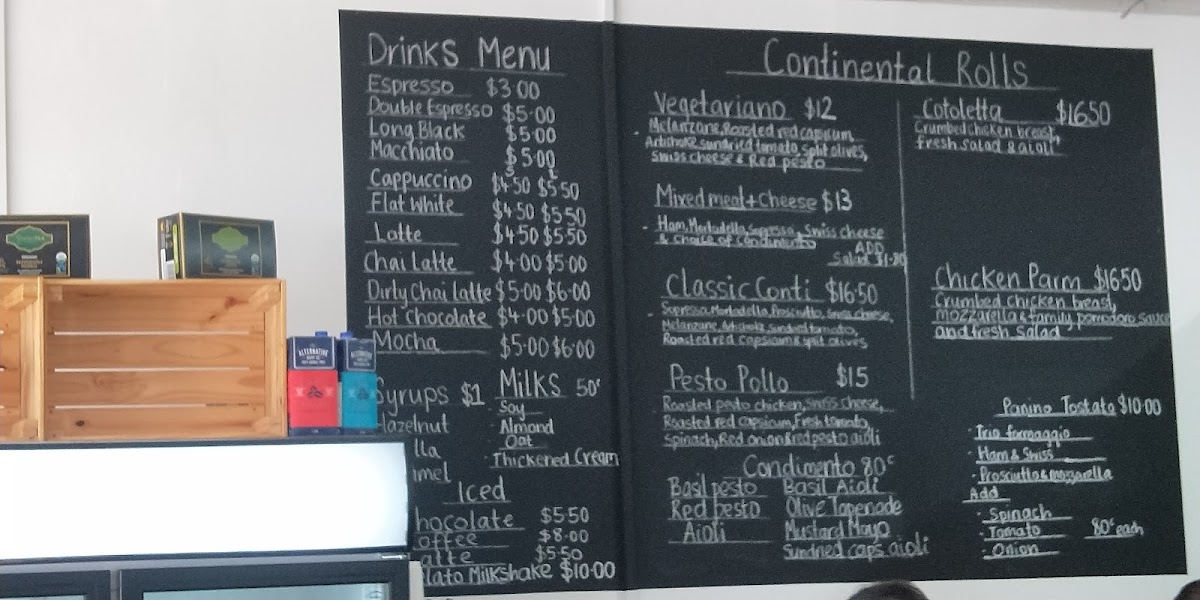 Drinks Menu
Espresso $3.00
Double Espresso $5.00
Long Black $5.00
Macchiato $5.00
S L
Cappuccino $4.50 $5.50
Flat White $4.50 $5.50
Latte $4.50 $5.50
Chai Latte $4.00 $5.00
Dirty Chai Latte $5.00 $6.00
Hot Chocolate $4.00 $5.00
Mocha $5.00 $6.00
Syrups $1
azelnut
lla
mel
Milks 50c
Soy
Almond
Oat
Thickened Cream
Iced
hocolate $5.50
offee $8.00
atte $5.50
lato Milkshake $10.00
Continental Rolls
Vegetariano $12
Melanzane, Roasted red capsicum,
Artichoke, sundried tomato, split olives,
Swiss cheese & Red pesto
Mixed meat + Cheese $13
Ham, Mortadella, Sopressa, Swiss cheese
& Choice of Condimento
ADD
Salad $1.80
Classic Conti $16.50
Sopressa, Mortadella, Prosciutto, Swiss cheese,
Melanzane, Artichoke, Sundried tomato,
Roasted red capsicum & split olives
Pesto Pollo $15
Roasted pesto chicken, Swiss cheese,
Roasted red capsicum, Fresh tomato,
Spinach, Red onion & red pesto aioli
Condimento 80c
Basil pesto
Red pesto
Aioli
Basil Aioli
Olive Tapenade
Mustard Mayo
Sundried caps aioli
Cotoletta $16.50
Crumbed chicken breast,
Fresh salad & aioli
Chicken Parm $16.50
Crumbed chicken breast,
mozzarella & family pomodoro sauce
and fresh salad
Panino Tostato $10.00
Trio formaggio
Ham & Swiss
Prosciutto & mozzarella
Add
Spinach
Tomato 80c each
Onion
ALTERNATIVE
ALTERNATIVE